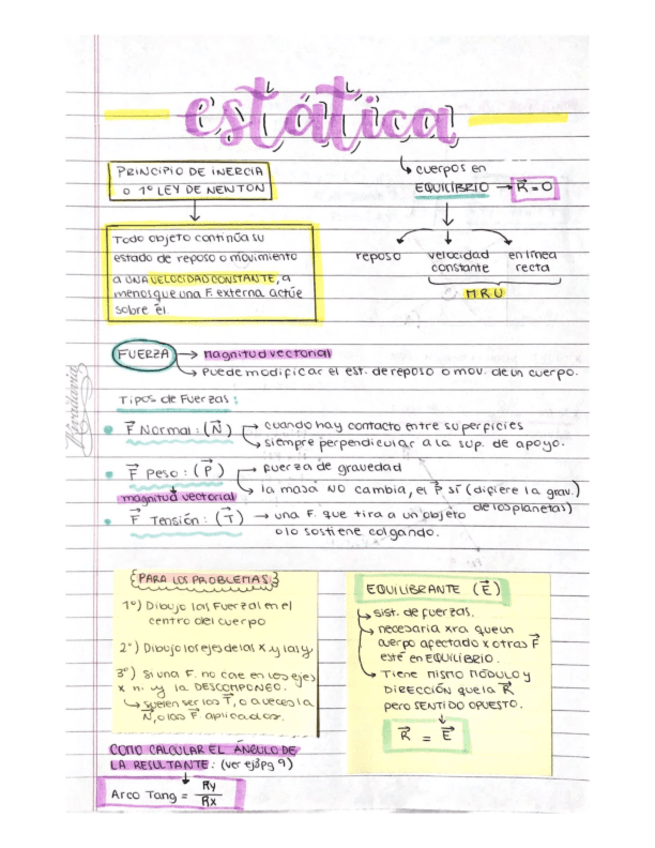 estática
PRINCIPIO DE INERCIA
O 1º LEY DE NEWTON
Todo objeto continúa su
estado de reposo o movimiento
a una VELOCIDAD CONSTANTE, a
menos que una F. externa actúe
sobre él.
cuerpos en
EQUILIBRIO → R⃗ = 0
reposo velocidad en línea
constante recta
MRU
FUERZA → magnitud vectorial
→ Puede modificar el est. de reposo o mov. de un cuerpo.
Tipos de Fuerzas:
F⃗ Normal: (N⃗) → cuando hay contacto entre superficies
→ siempre perpendicular a la sup. de apoyo.
F⃗ Peso: (P⃗) → fuerza de gravedad
→ la masa NO cambia, el P⃗ sí (difiere la grav.)
de los planetas)
magnitud vectorial
F⃗ Tensión: (T⃗) → una F. que tira a un objeto
o lo sostiene colgando.
PARA LOS PROBLEMAS
1º) Dibujo las Fuerzas en el
centro del cuerpo
2º) Dibujo los ejes de las x y las y
3º) Si una F. no cae en los ejes
x n. y la DESCOMPONGO.
↳ suelen ser las T⃗, o a veces la
N⃗, o las F⃗ aplicadas.
EQUILIBRANTE (E⃗)
→ sist. de fuerzas.
→ necesaria xra que un
cuerpo afectado x otras F⃗
esté en EQUILIBRIO.
→ Tiene mismo MÓDULO y
DIRECCIÓN que la R⃗
pero SENTIDO OPUESTO.
R⃗ = E⃗
COMO CALCULAR EL ÁNGULO DE
LA RESULTANTE: (ver ej3pg 9)
Arco Tang = Ry
Rx